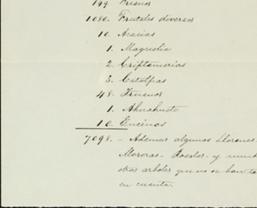 199. Fresnos
1080. Frutales diversos
10. Acacias
1. Magnolia
2. Criptomerias
3. Catalpas
48. Truenos
1. Ahuehuete
10. Encinos
7098. - Ademas algunos Llorones
Moreras. Rosales y
otros arboles que no se han
en cuenta.